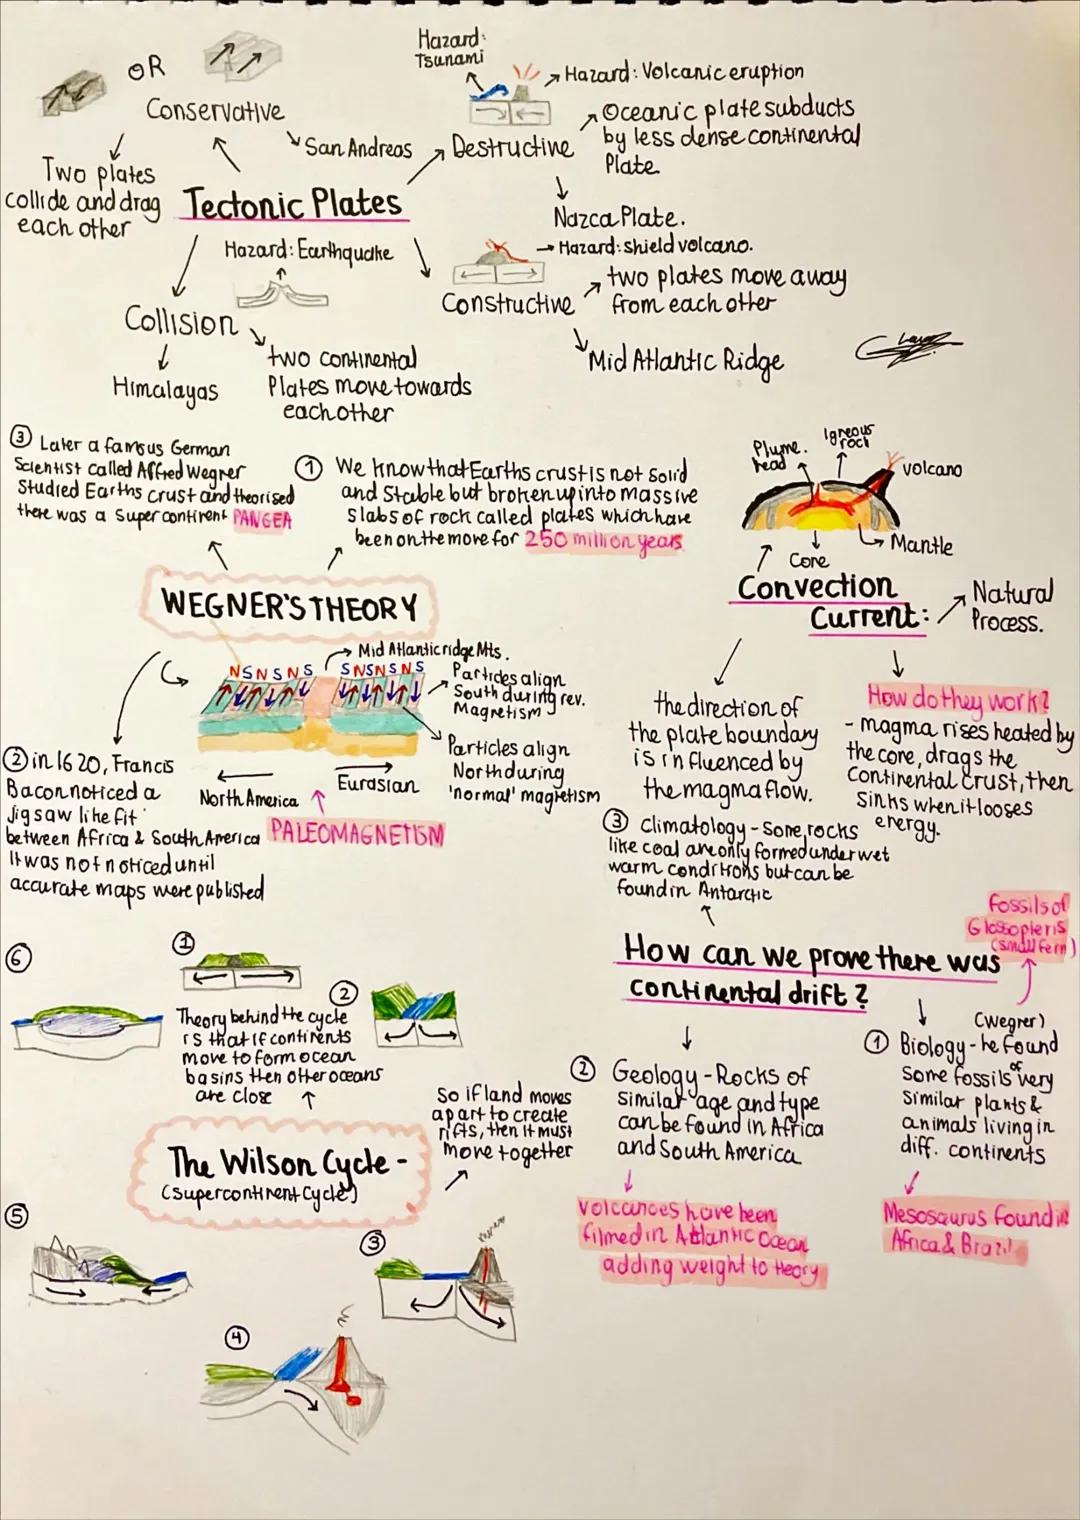 OR
Conservative
San Andreas
Two plates
collide and drag
each other
Tectonic Plates
Hazard:
Tsunami
Hazard: Volcanic eruption
Destructive
Oceanic plate subducts
by less dense continental
Plate
Nazca Plate.
Hazard: shield volcano.
Constructive
two plates move away
from each other
Mid Atlantic Ridge
Hazard: Earthquake
Collision
Himalayas
two continental
Plates move towards
each other
③ Later a famous German
Scientist called Alfred Wegner
Studied Earths crust and theorised
there was a Super continent PANGEA
① We know that Earths crust is not solid
and Stable but broken up into massive
slabs of rock called plates which have
been on the move for 250 million years
WEGNER'S THEORY
Mid Atlantic ridge Mts.
N S N S N S
S N S N S N S
Particles align
South during rev.
Magnetism
Particles align
North during
'normal' magnetism
North America
Eurasian
PALEOMAGNETISM
② in 1620, Francis
Bacon noticed a
jigsaw like fit
between Africa & South America
It was not noticed until
accurate maps were published
Plume
head
Igneous
rock
volcano
Mantle
Core
Convection
Current:
Natural
Process.
the direction of
the plate boundary
is influenced by
the magma flow.
How do they work?
- magma rises heated by
the core, drags the
Continental Crust, then
sinks when it looses
energy.
③ Climatology - Some rocks
like coal are only formed under wet
warm conditions but can be
found in Antarctic
How can we prove there was
continental drift?
Fossils of
Glossopteris
(small fern)
(Wegner)
① Biology - he found
some fossils of very
similar plants &
animals living in
diff. continents
Mesosaurus found in
Africa & Brazil
② Geology - Rocks of
Similar age and type
can be found in Africa
and South America
volcanoes have been
filmed in Atlantic Ocean
adding weight to theory
①
Theory behind the cycle
is that if continents
move to form ocean
basins then other oceans
are close
②
So if land moves
apart to create
rifts, then it must
move together
The Wilson Cycle -
(supercontinent Cycle)
③
④
⑤
⑥